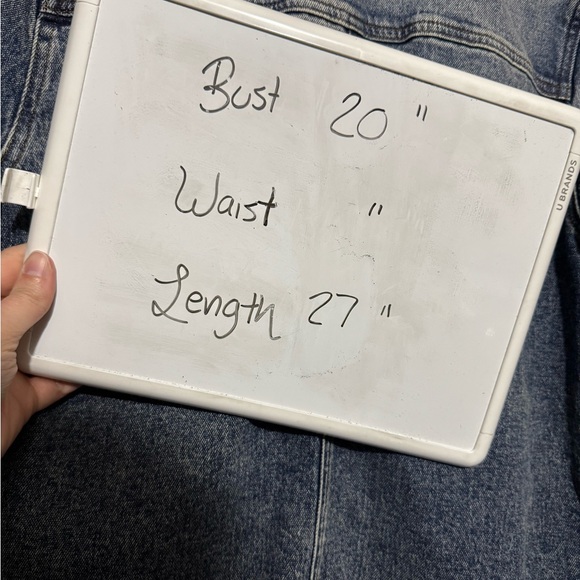 Bust 20 "
Waist "
Length 27 "
U BRANDS